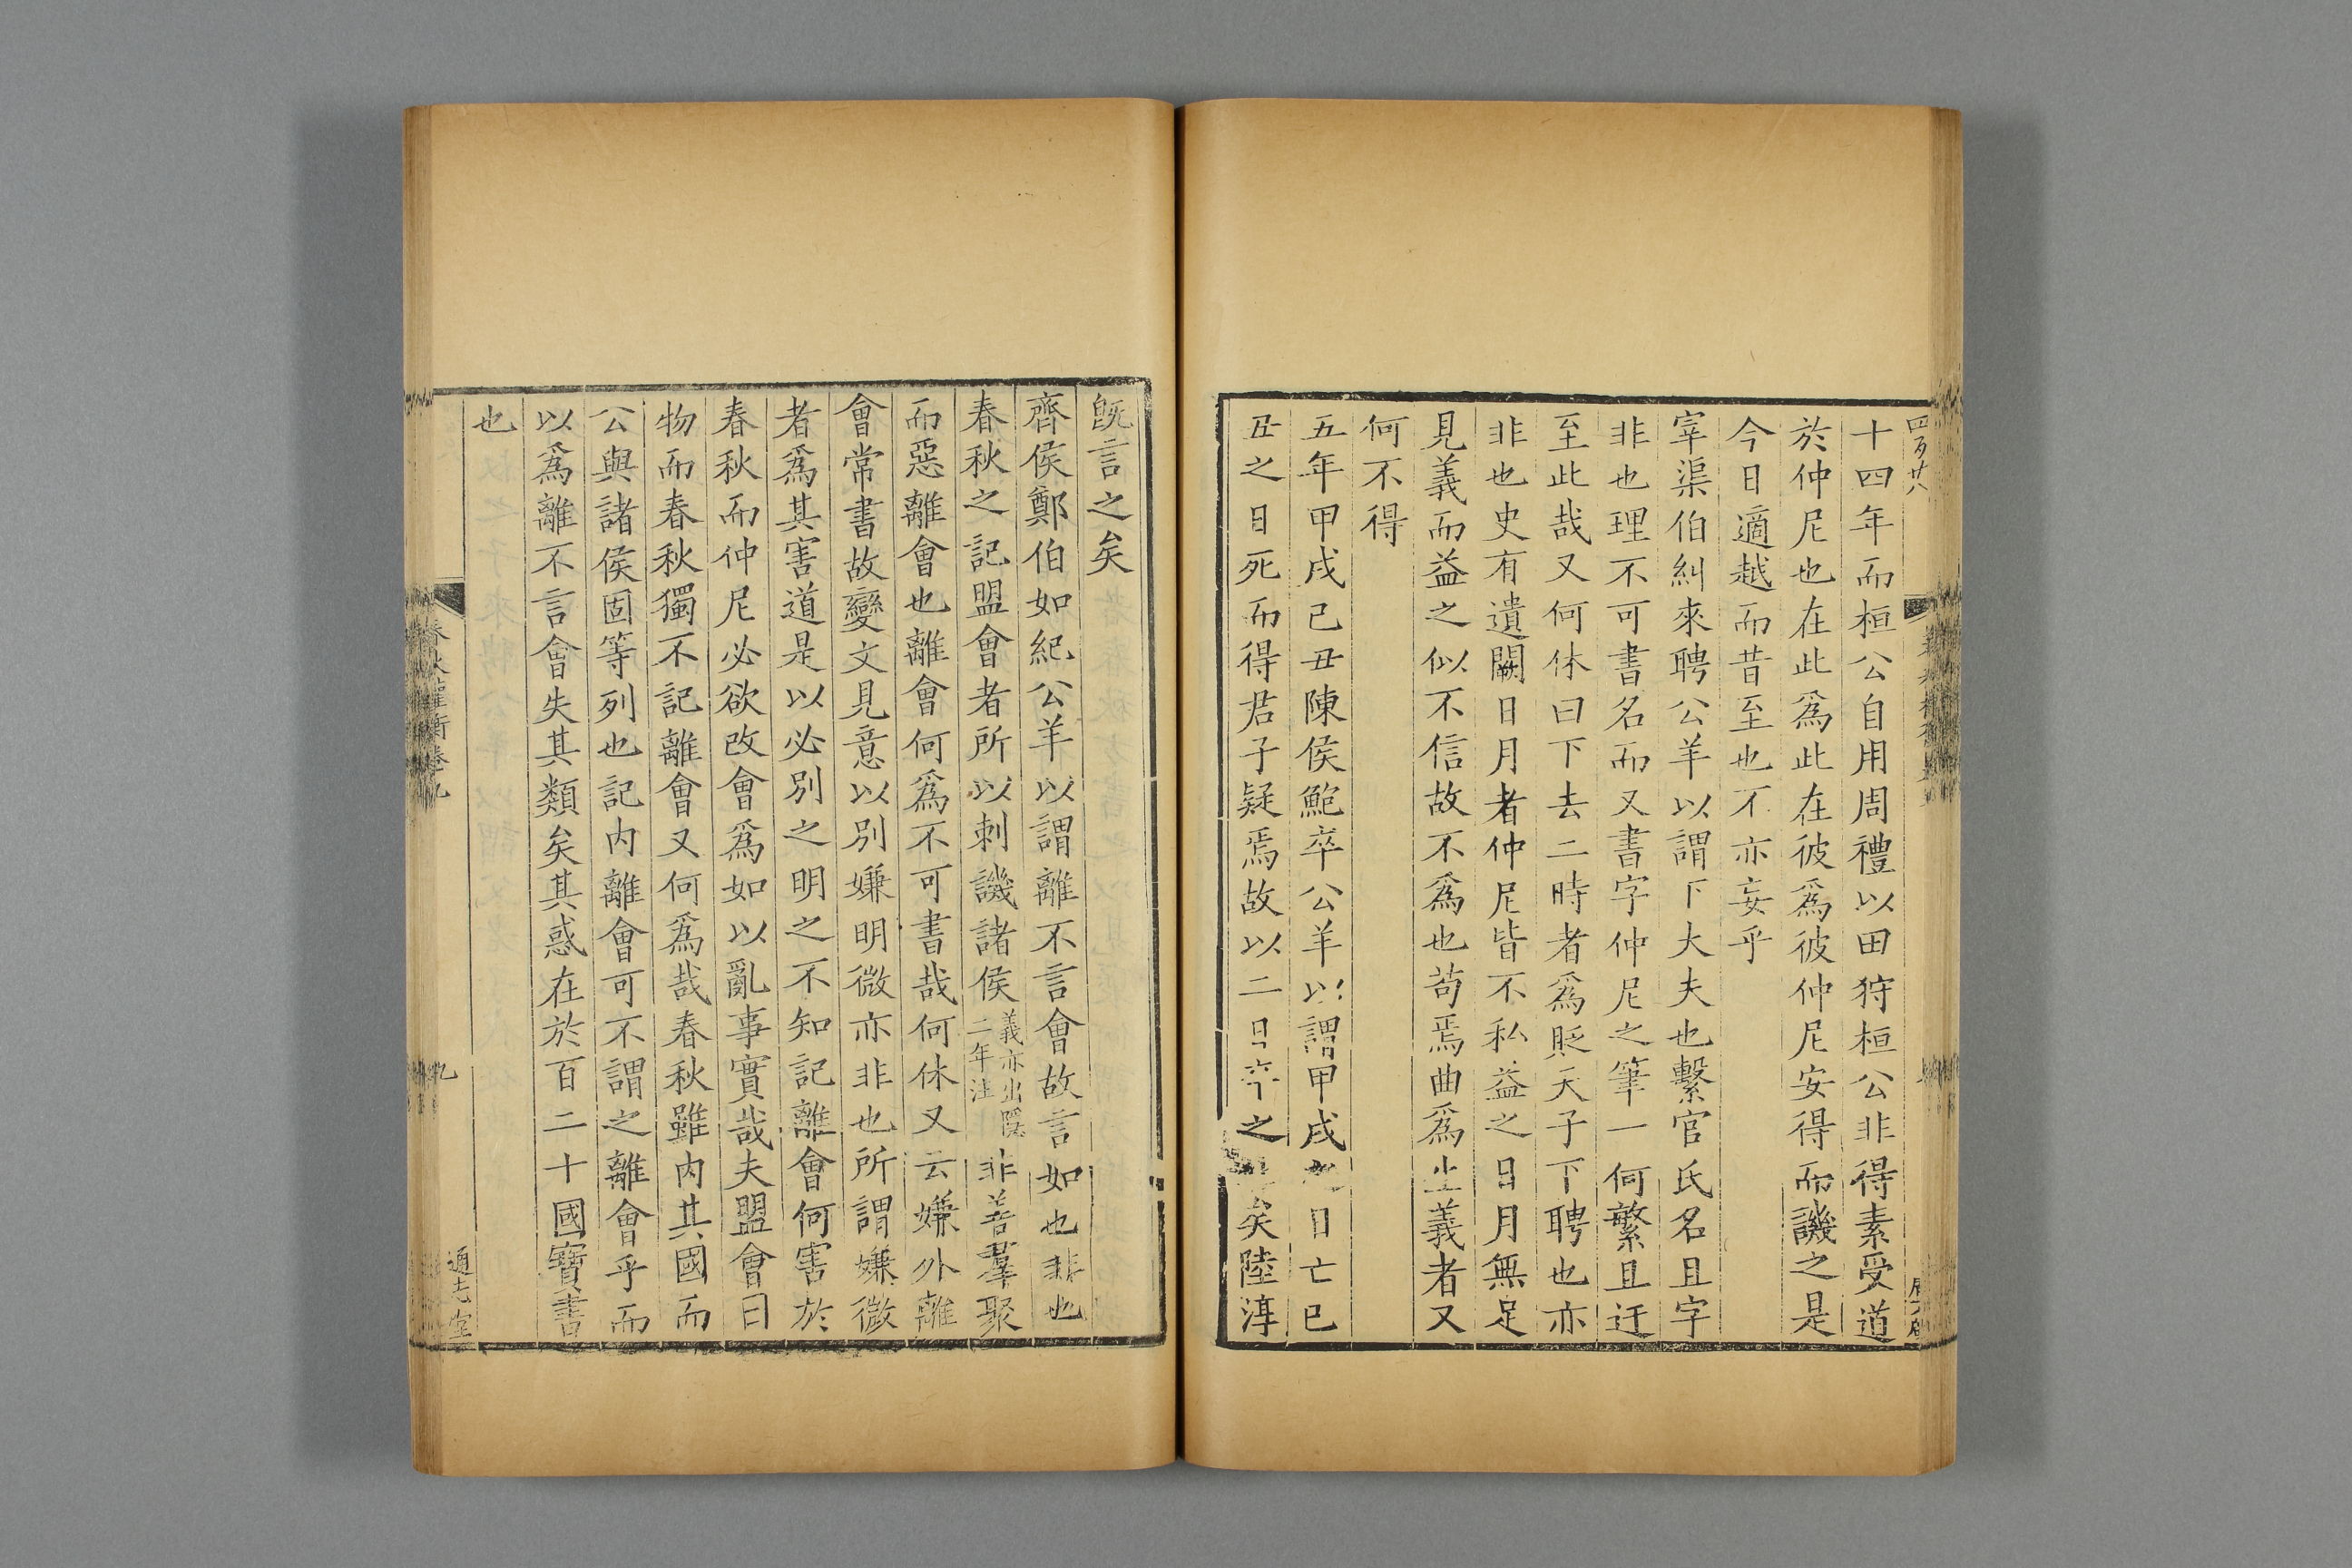 四百廿八
十四年而桓公自用周禮以田狩桓公非得素受道
於仲尼也在此爲此在彼爲彼仲尼安得而譏之是
今日適越而昔至也不亦妄乎
宰渠伯糾來聘公羊以謂下大夫也繫官氏名且字
非也理不可書名而又書字仲尼之筆一何繁且迂
至此哉又何休曰下去二時者爲貶天子下聘也亦
非也史有遺闕日月者仲尼皆不私益之日月無足
見義而益之似不信故不爲也苟焉曲爲生義者又
何不得
五年甲戌己丑陳侯鮑卒公羊以謂甲戌之日亡已
丑之日死而得君子疑焉故以二日卒之矣陸淳
既言之矣
齊侯鄭伯如紀公羊以謂離不言會故言如也非也
春秋之記盟會者所以刺譏諸侯義亦出隱二年注非善羣聚
而惡離會也離會何爲不可書哉何休又云嫌外離
會常書故變文見意以別嫌明微亦非也所謂嫌微
者爲其害道是以必別之明之不知記離會何害於
春秋而仲尼必欲改會爲如以亂事實哉夫盟會曰
物而春秋獨不記離會又何爲哉春秋雖內其國而
公與諸侯固等列也記內離會可不謂之離會乎而
以爲離不言會失其類矣其惑在於百二十國寶書
也
春秋權衡卷九
九
通志堂